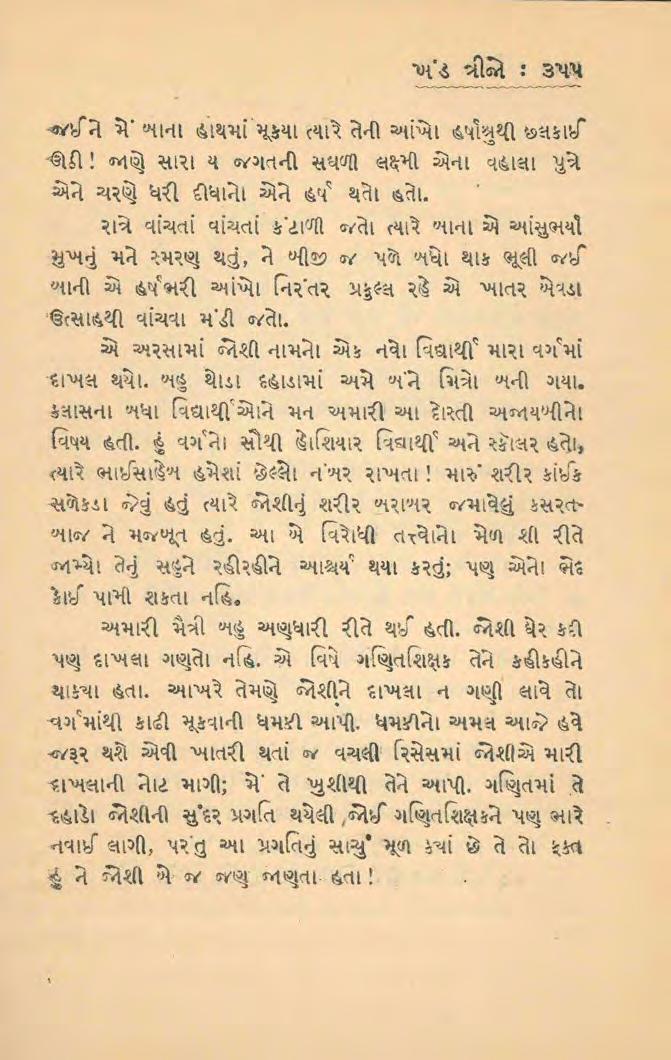 ખંડ ત્રીજો : ૩૫૫
જઈને મેં બાના હાથમાં મૂક્યા ત્યારે તેની આંખો હર્ષાશ્રુથી છલકાઈ
ઊઠી! જાણે સારા ય જગતની સઘળી લક્ષ્મી એના વહાલા પુત્રે
એને ચરણે ધરી દીધાનો એને હર્ષ થતો હતો.
રાત્રે વાંચતાં વાંચતાં કંટાળી જતો ત્યારે બાના એ આંસુભર્યા
મુખનું મને સ્મરણ થતું, ને બીજી જ પળે બધો થાક ભૂલી જઈ
બાની એ હર્ષભરી આંખો નિરંતર પ્રફુલ્લ રહે એ ખાતર બેવડા
ઉત્સાહથી વાંચવા મંડી જતો.
એ અરસામાં જોશી નામનો એક નવો વિદ્યાર્થી મારા વર્ગમાં
દાખલ થયો. બહુ થોડા દહાડામાં અમે બંને મિત્રો બની ગયા.
ક્લાસના બધા વિદ્યાર્થીઓને મન અમારી આ દોસ્તી અજાયબીનો
વિષય હતી. હું વર્ગનો સૌથી હોશિયાર વિદ્યાર્થી અને સ્કૉલર હતો,
ત્યારે ભાઈસાહેબ હમેશાં છેલ્લો નંબર રાખતા! મારું શરીર કાંઈક
સળેકડા જેવું હતું ત્યારે જોશીનું શરીર બરાબર જમાવેલું કસરત-
બાજ ને મજબૂત હતું. આ બે વિરોધી તત્ત્વોનો મેળ શી રીતે
જામ્યો તેનું સહુને રહીરહીને આશ્ચર્ય થયા કરતું; પણ એનો ભેદ
કોઈ પામી શકતા નહિ.
અમારી મૈત્રી બહુ અણધારી રીતે થઈ હતી. જોશી ઘેર કદી
પણ દાખલા ગણતો નહિ. એ વિષે ગણિતશિક્ષક તેને કહીકહીને
થાક્યા હતા. આખરે તેમણે જોશીને દાખલા ન ગણી લાવે તો
વર્ગમાંથી કાઢી મૂકવાની ધમકી આપી. ધમકીનો અમલ આજે હવે
જરૂર થશે એવી ખાતરી થતાં જ વચલી રિસેસમાં જોશીએ મારી
દાખલાની નોટ માગી; મેં તે ખુશીથી તેને આપી. ગણિતમાં તે
દહાડે જોશીની સુંદર પ્રગતિ થયેલી જોઈ ગણિતશિક્ષકને પણ ભારે
નવાઈ લાગી, પરંતુ આ પ્રગતિનું સાચું મૂળ ક્યાં છે તે તો ફક્ત
હું ને જોશી બે જ જણ જાણતા હતા!